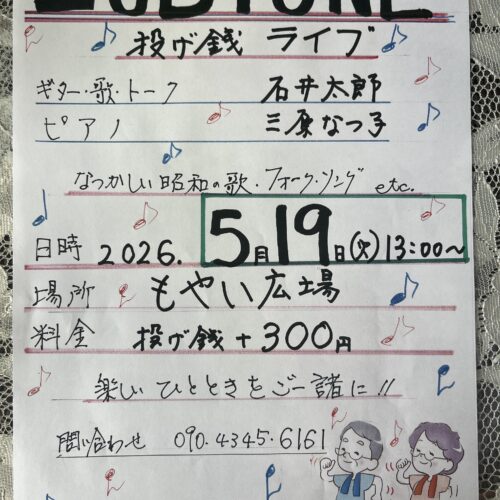 投げ銭 ライブ
ギター・歌・トーク 石井太郎
ピアノ 三原なつ子
なつかしい昭和の歌・フォーク・ソング etc.
日時 2026. 5月19日(火)13:00～
場所 もやい広場
料金 投げ銭+300円
楽しいひとときをご一諸に!!
問い合わせ 090.4345.6161